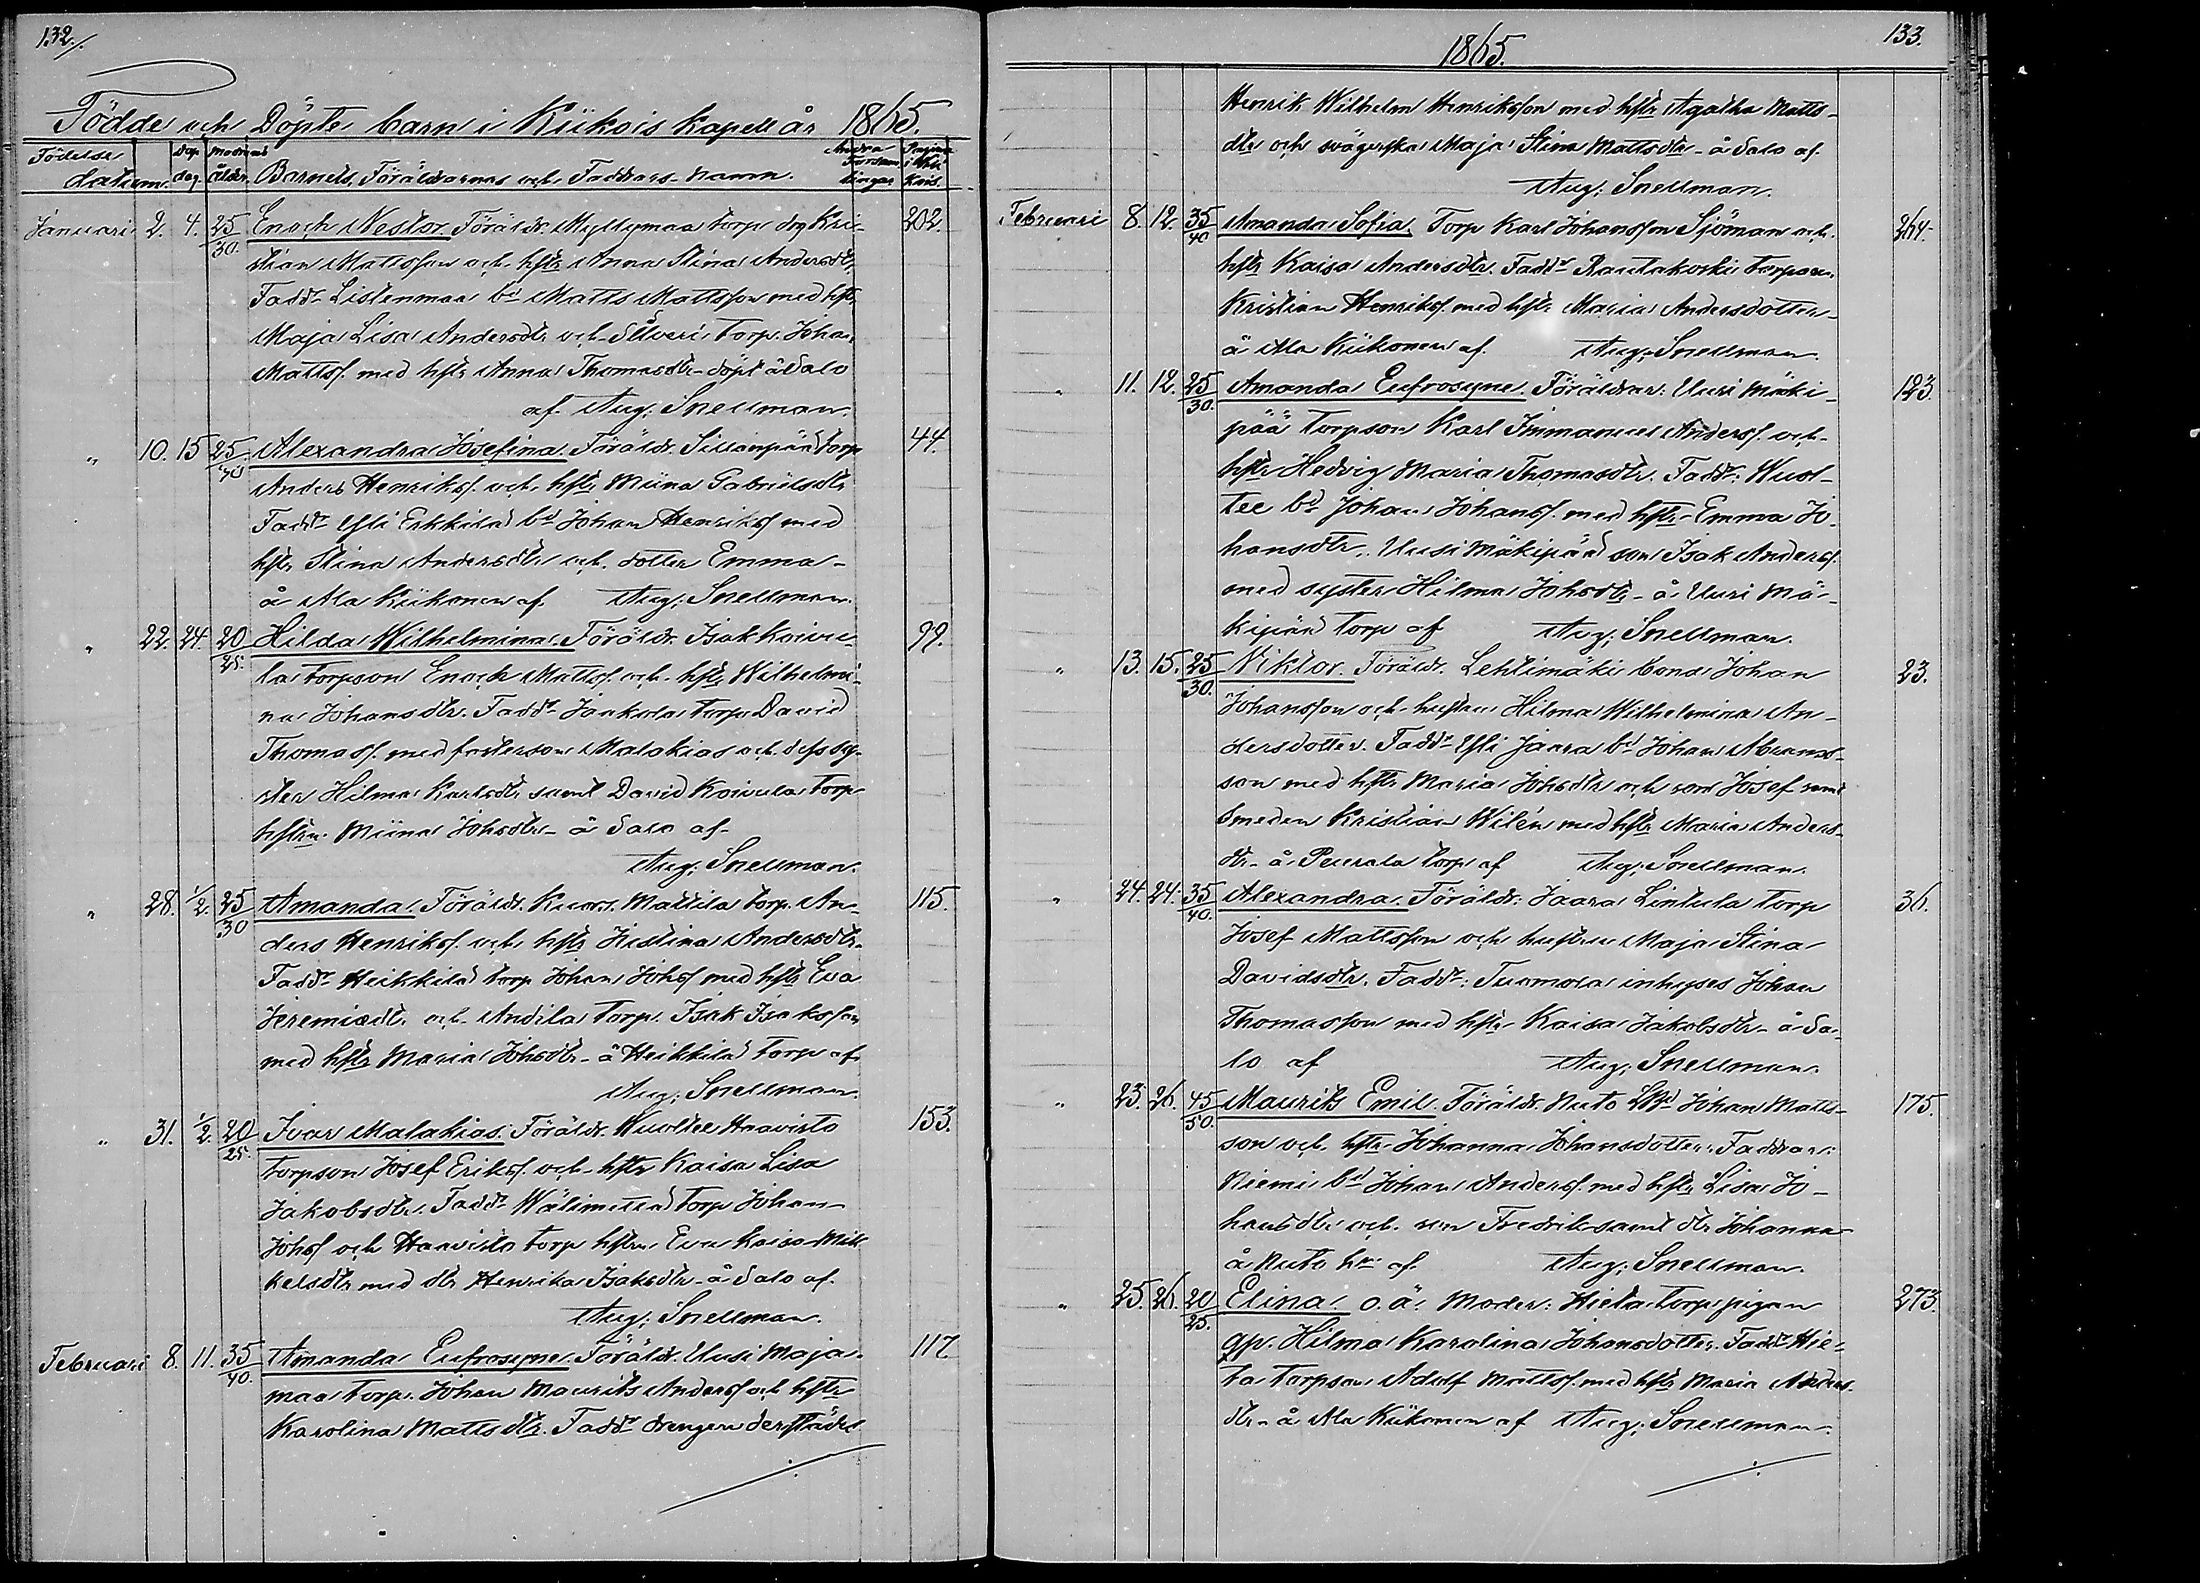 132.
Födde och Döpte barn i Kiikois Kapell år 1865.
Födelse datum. Dop dag Modrens ålder Barnets, Föräldrarnas och Faddrars namn. Andra Pagina i
Januari 2. 4. 25/30. Enoch Nestor. Föräldr. Myllymaa torp. drg Kri- 202.
stian Mattsson och hstr Anna Stina Andersdtr,
Faddr Listenmaa bd Matts Mattsson med hstr
Maja Lisa Andersdtr och torp. Johan
Mattss. med hstr Anna Thomasdtr - döpt å Salo
af. Aug. Snellman.
" 10. 15 25/30 Alexandra Josefina. Föräldr. Sillanpää torp 44.
Anders Henrikss. och hstr Miina Gabrielsdtr
Faddr Yli Erkkilä bd Johan Henrikss med
hstr Stina Andersdtr och dotter Emma -
å Ala Kiikonen af. Aug. Snellman.
" 22. 24. 20/25. Hilda Wilhelmina. Föräldr. Isak Koivu- 99.
la torpson Enoch Mattss. och hstr Wilhelmi-
na Johansdtr. Faddr Jaakola torp. David
Thomass. med fosterson Malakias och dess sy-
ster Hilma Karlsdtr samt David Koivula torp
hstrn Miina Johsdtr - å Salo af
Aug. Snellman.
" 28. 1/2. 25/30 Amanda. Föräldr. Mattila torp. An- 115.
ders Henrikss. och hstr Justina Andersdtr.
Faddr Heikkilä torp Johan Johss med hstr Eva
Jeremiædtr och Andila torp. Isak Isaksson
med hstr Maria Johsdtr - å Heikkilä torp af
Aug. Snellman.
" 31. 1/2. 20/25. Ivar Malakias. Föräldr. Wuoltee Haavisto 153.
torpson Josef Erikss. och hstr Kaisa Lisa
Jakobsdtr. Faddr Wälimaa torp Johan
Johss och Haavisto torp hstrn Eva Kaisa Mik-
kelsdtr med dtr Henrika Isaksdtr - å Salo af.
Aug. Snellman.
Februari 8. 11. 35/40. Amanda Eufrosyne. Föräldr. Uusi Maja- 117
maa torp. Johan Maurits Anderss och hstr
Karolina Mattsdtr. Faddr drengen derstädes
133.
1865.
Henrik Wilhelm Henriksson med hstr Agatha Matts-
dtr och svägerska Maja Stina Mattsdtr - å Salo af
Aug. Snellman.
Februari 8. 12. 35/40 Amanda Sofia. Torp Karl Johansson Sjöman och 264.
hstr Kaisa Andersdtr. Faddr Rautakoski torparen
Kristian Henrikss. med hstr Maria Andersdotter
å Ala Kiikonen af. Aug. Snellman.
" 11. 12. 25/30. Amanda Eufrosyne. Föräldrar: Uusi Mäki- 123.
pää torpson Karl Immanuel Anderss. och
hstr Hedvig Maria Thomasdtr. Faddr: Wuol-
tee bd Johan Johanss. med hstr Emma Jo-
hansdtr, Uusi Mäkipää son Isak Anderss.
med syster Hilma Johsdtr - å Uusi Mä-
kipää torp af Aug. Snellman.
" 13. 15. 25/30. Viktor. Föräldr. Lehtimäki bond Johan 23.
Johansson och hustru Hilma Wilhelmina An-
dersdotter. Faddr Yli Jaara bd Johan Abrams-
son med hstr Maria Johsdtr och son Josef samt
smeden Kristian Wilén med hstr Maria Anders-
dtr - å Peurala torp af Aug. Snellman.
" 24. 24. 35/40. Alexandra. Föräldr: Jaara Lintula torp 36.
Josef Mattsson och hustru Maja Stina
Davidsdtr. Faddr: Tuomola inhyses Johan
Thomasson med hstr Kaisa Jakobsdtr - å Sa-
lo af Aug. Snellman.
" 23. 26. 45/50. Maurits Emil. Föräldr. Nuto Johan Matts- 175.
son och hstr Johanna Johansdotter. Faddrar:
Niemi bd Johan Anderss. med hstr Lisa Jo-
hansdtr och son Fredrik samt dtr Johanna
å Nuto af Aug. Snellman.
" 25. 26. 20/25. Elina. o.ä. Moder: Hieta torp pigan 273.
qp. Hilma Karolina Johansdotter. Faddr Hie-
ta torpson Adolf Mattss. med hstr Maria Anders-
dtr - å Ala Kiikonen af Aug. Snellman.